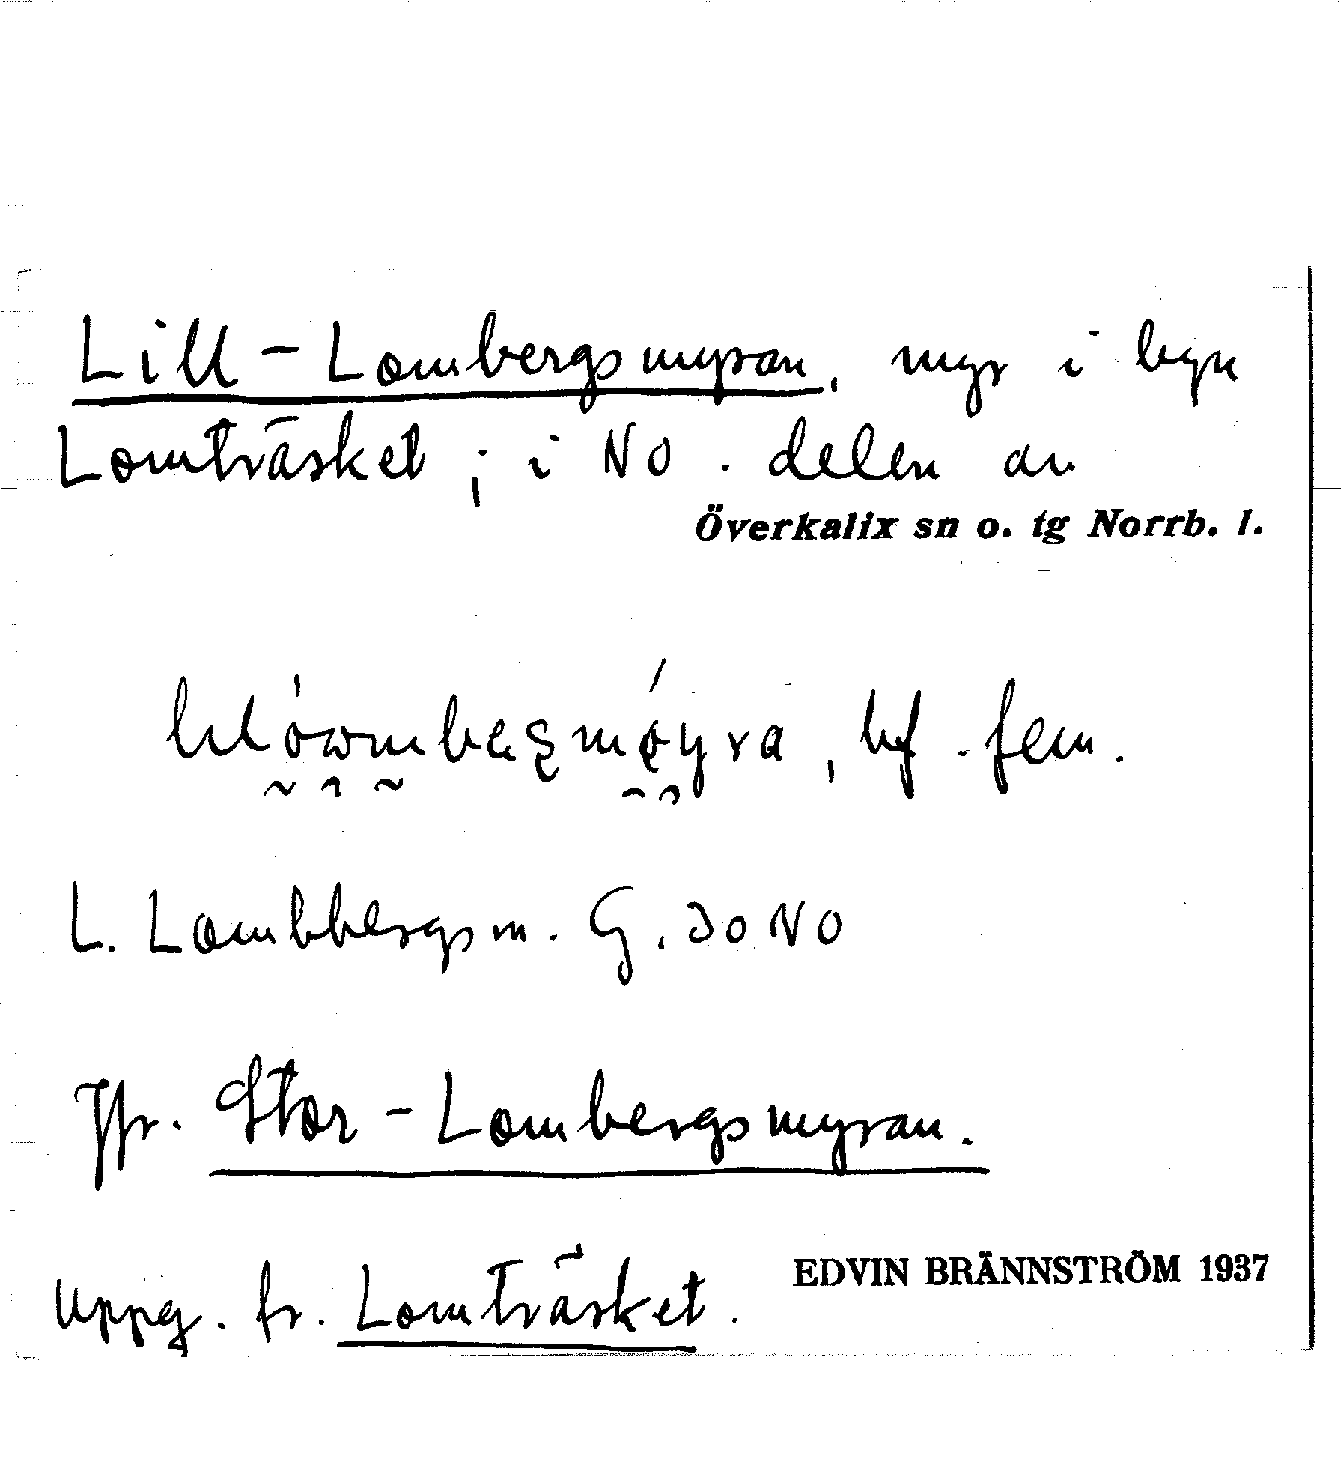 Lill-Lombergsmyran, myr i byn
Lomträsket; i NO. delen av
Överkalix sn o. tg Norrb. l.
bf. fem.
L. Lombbergsm. G. 30 NO
Jfr. Stor-Lombergsmyran.
Uppg. fr. Lomträsket.
EDVIN BRÄNNSTRÖM 1937